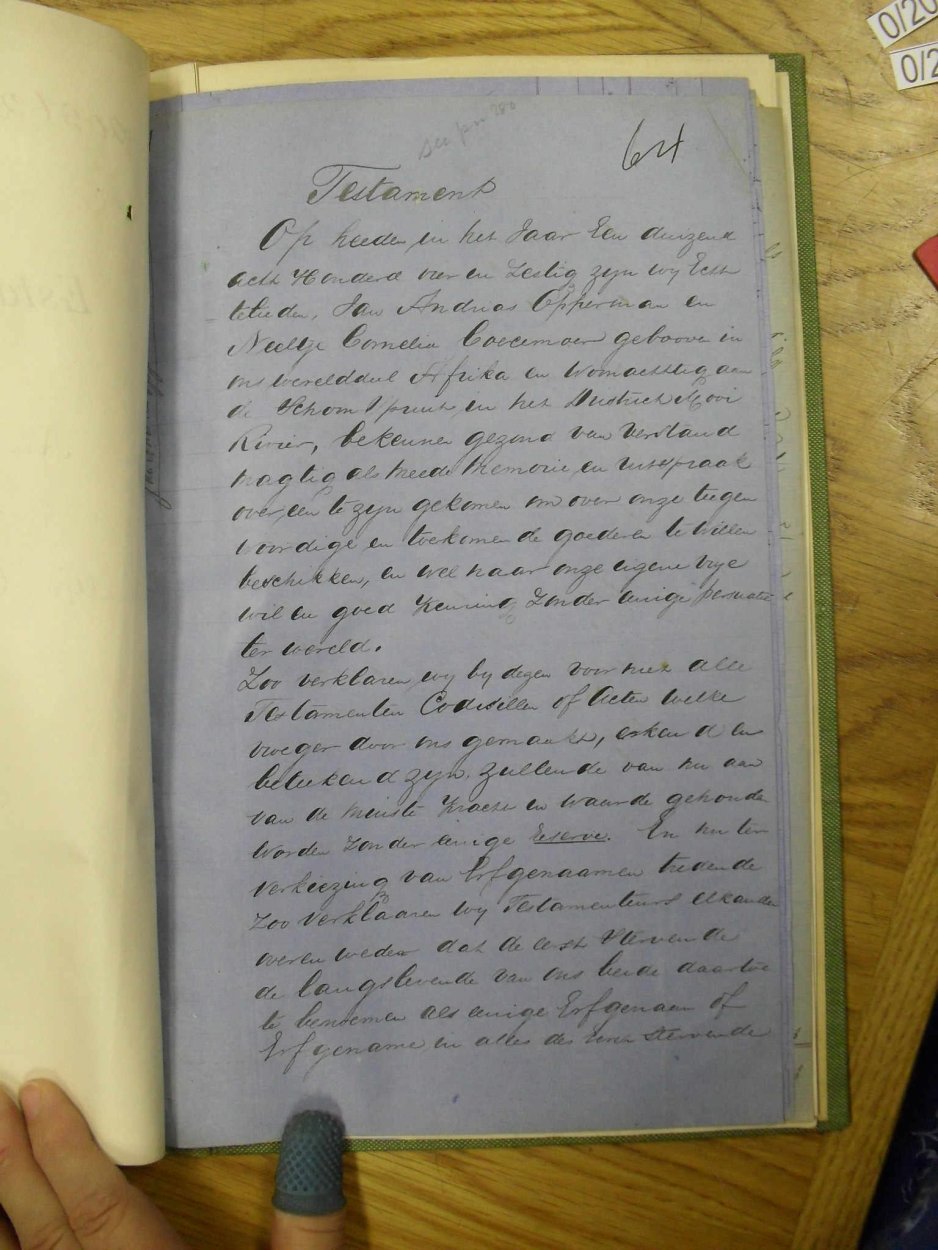 64
Testament
Op heeden in het Jaar Een duizend
acht Honderd vier en Zestig zyn wy Echt
telieden, Jan Andries Opperman en
Neeltje Cornelia Coecemoer geboore in
ons werelddeel Afrika en Woonachtig aan
de Schoon Spruit, in het District Mooi
Rivier, bekennen gezond van Verstand
magtig als meede Memorie en Uitspraak
over een te zyn gekomen om over onze teegen
woordige en toekomen de goederen te Willen
beschikken, en wel naar onze eigene vrye
wil en goed Keuring Zonder eenige persuatie
ter wereld.
Zoo verklaren wy by dezen voor niet alle
Testamenten Codisillen of Acten welke
vroeger door ons gemaakt, erkend en
beteekend zyn. zullende van nu aan
van de minste Kracht en waarde gehouden
worden Zonder eenige Reserve. En nu ter
verkiezing van Erfgenaamen tredende
Zoo verklaaren wy Testamenteurs elkander
over en weder dat de eerst Stervende
de langslevende van ons beide daartoe
te benoemen als eenige Erfgenaam of
Erfgename in alles des Eerst Stervende
0/20
0/2